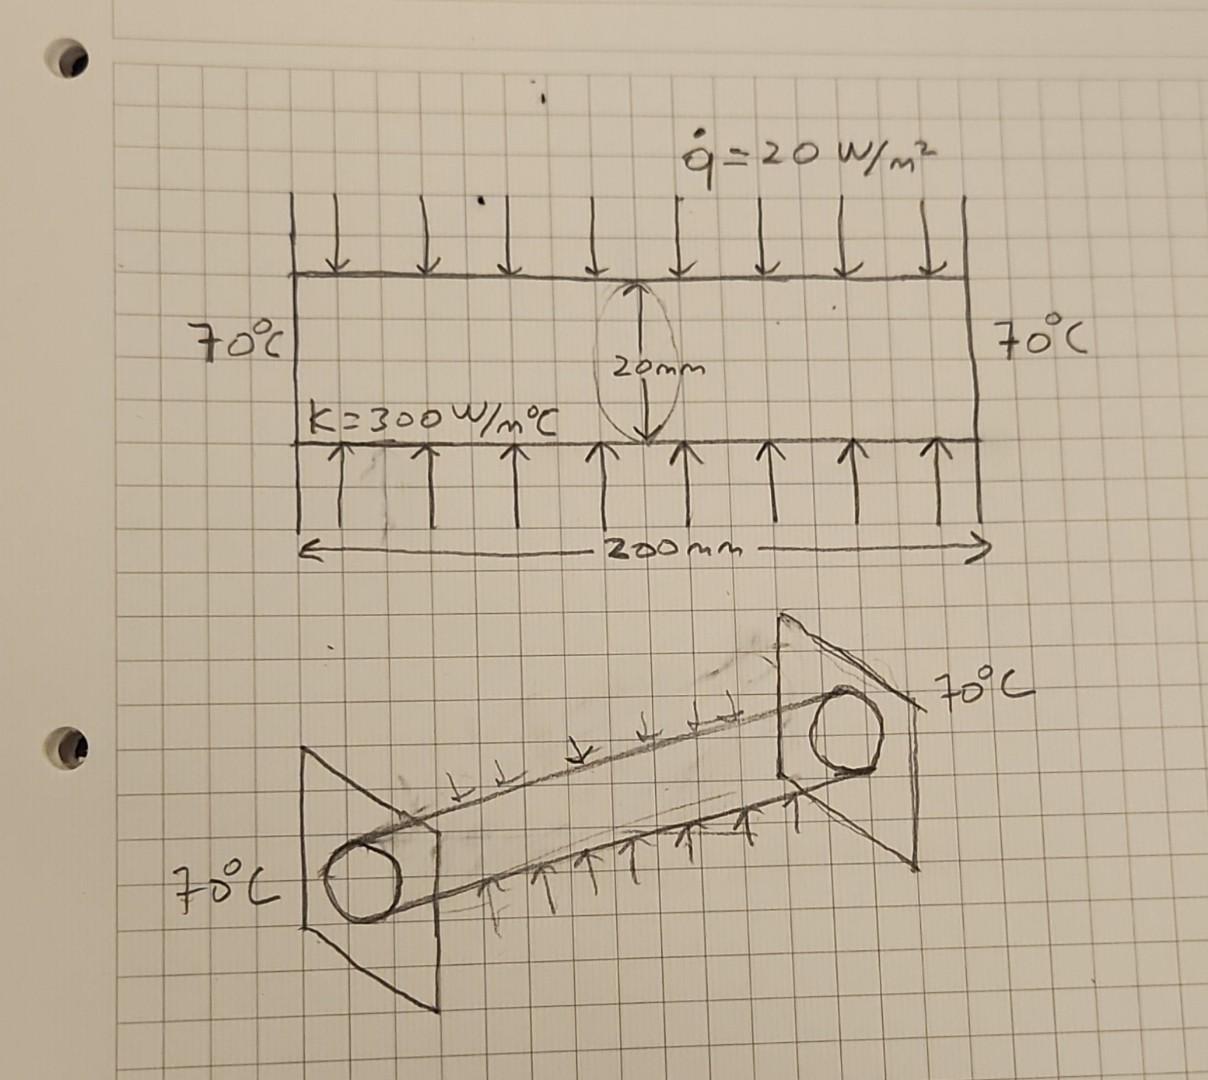 q̇ = 20 W/m²
70°C
70°C
20mm
K = 300 W/m°C
200mm
70°C
70°C